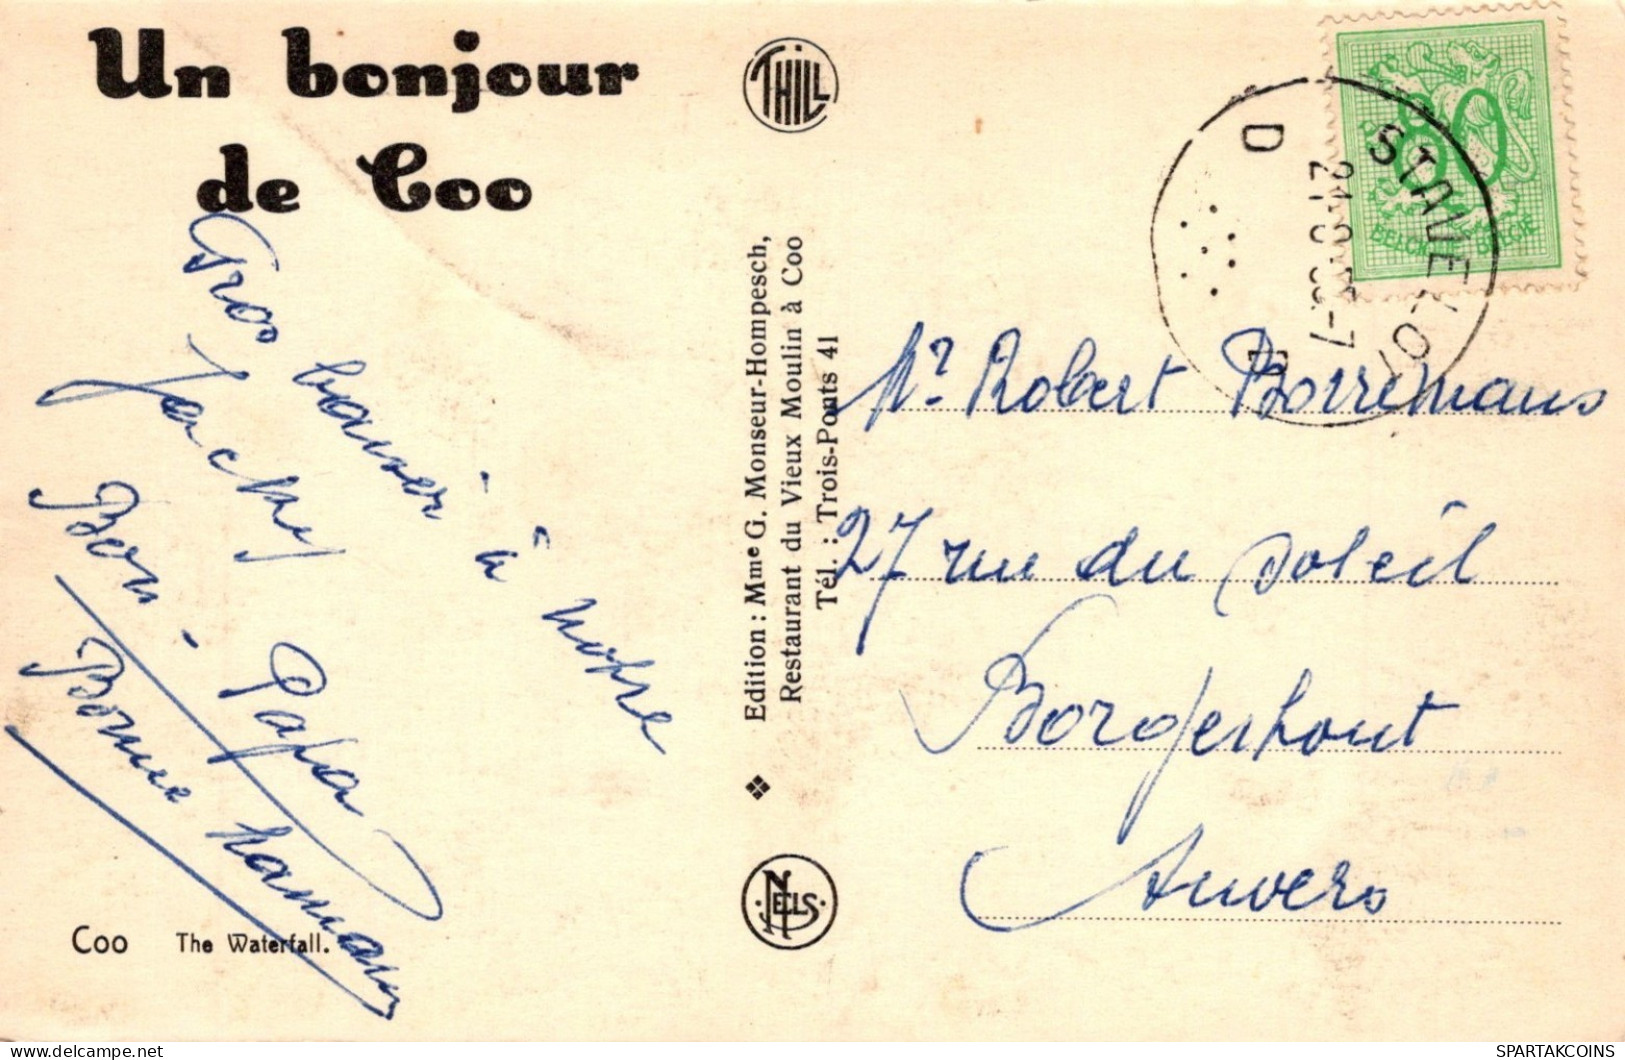 Un bonjour
de Coo
Gros baiser à notre
Jacky
Bon-Papa
Bonne Maman
Coo The Waterfall.
THILL
Edition : Mme G. Monseur-Hompesch,
Restaurant du Vieux Moulin à Coo
Tél. : Trois-Ponts 41
NELS
80
BELGIE
STAVELOT
D
Mr Robert Borremans
27 rue du Soleil
Borgerhout
Anvers
SPARTAKCOINS
www.delcampe.net